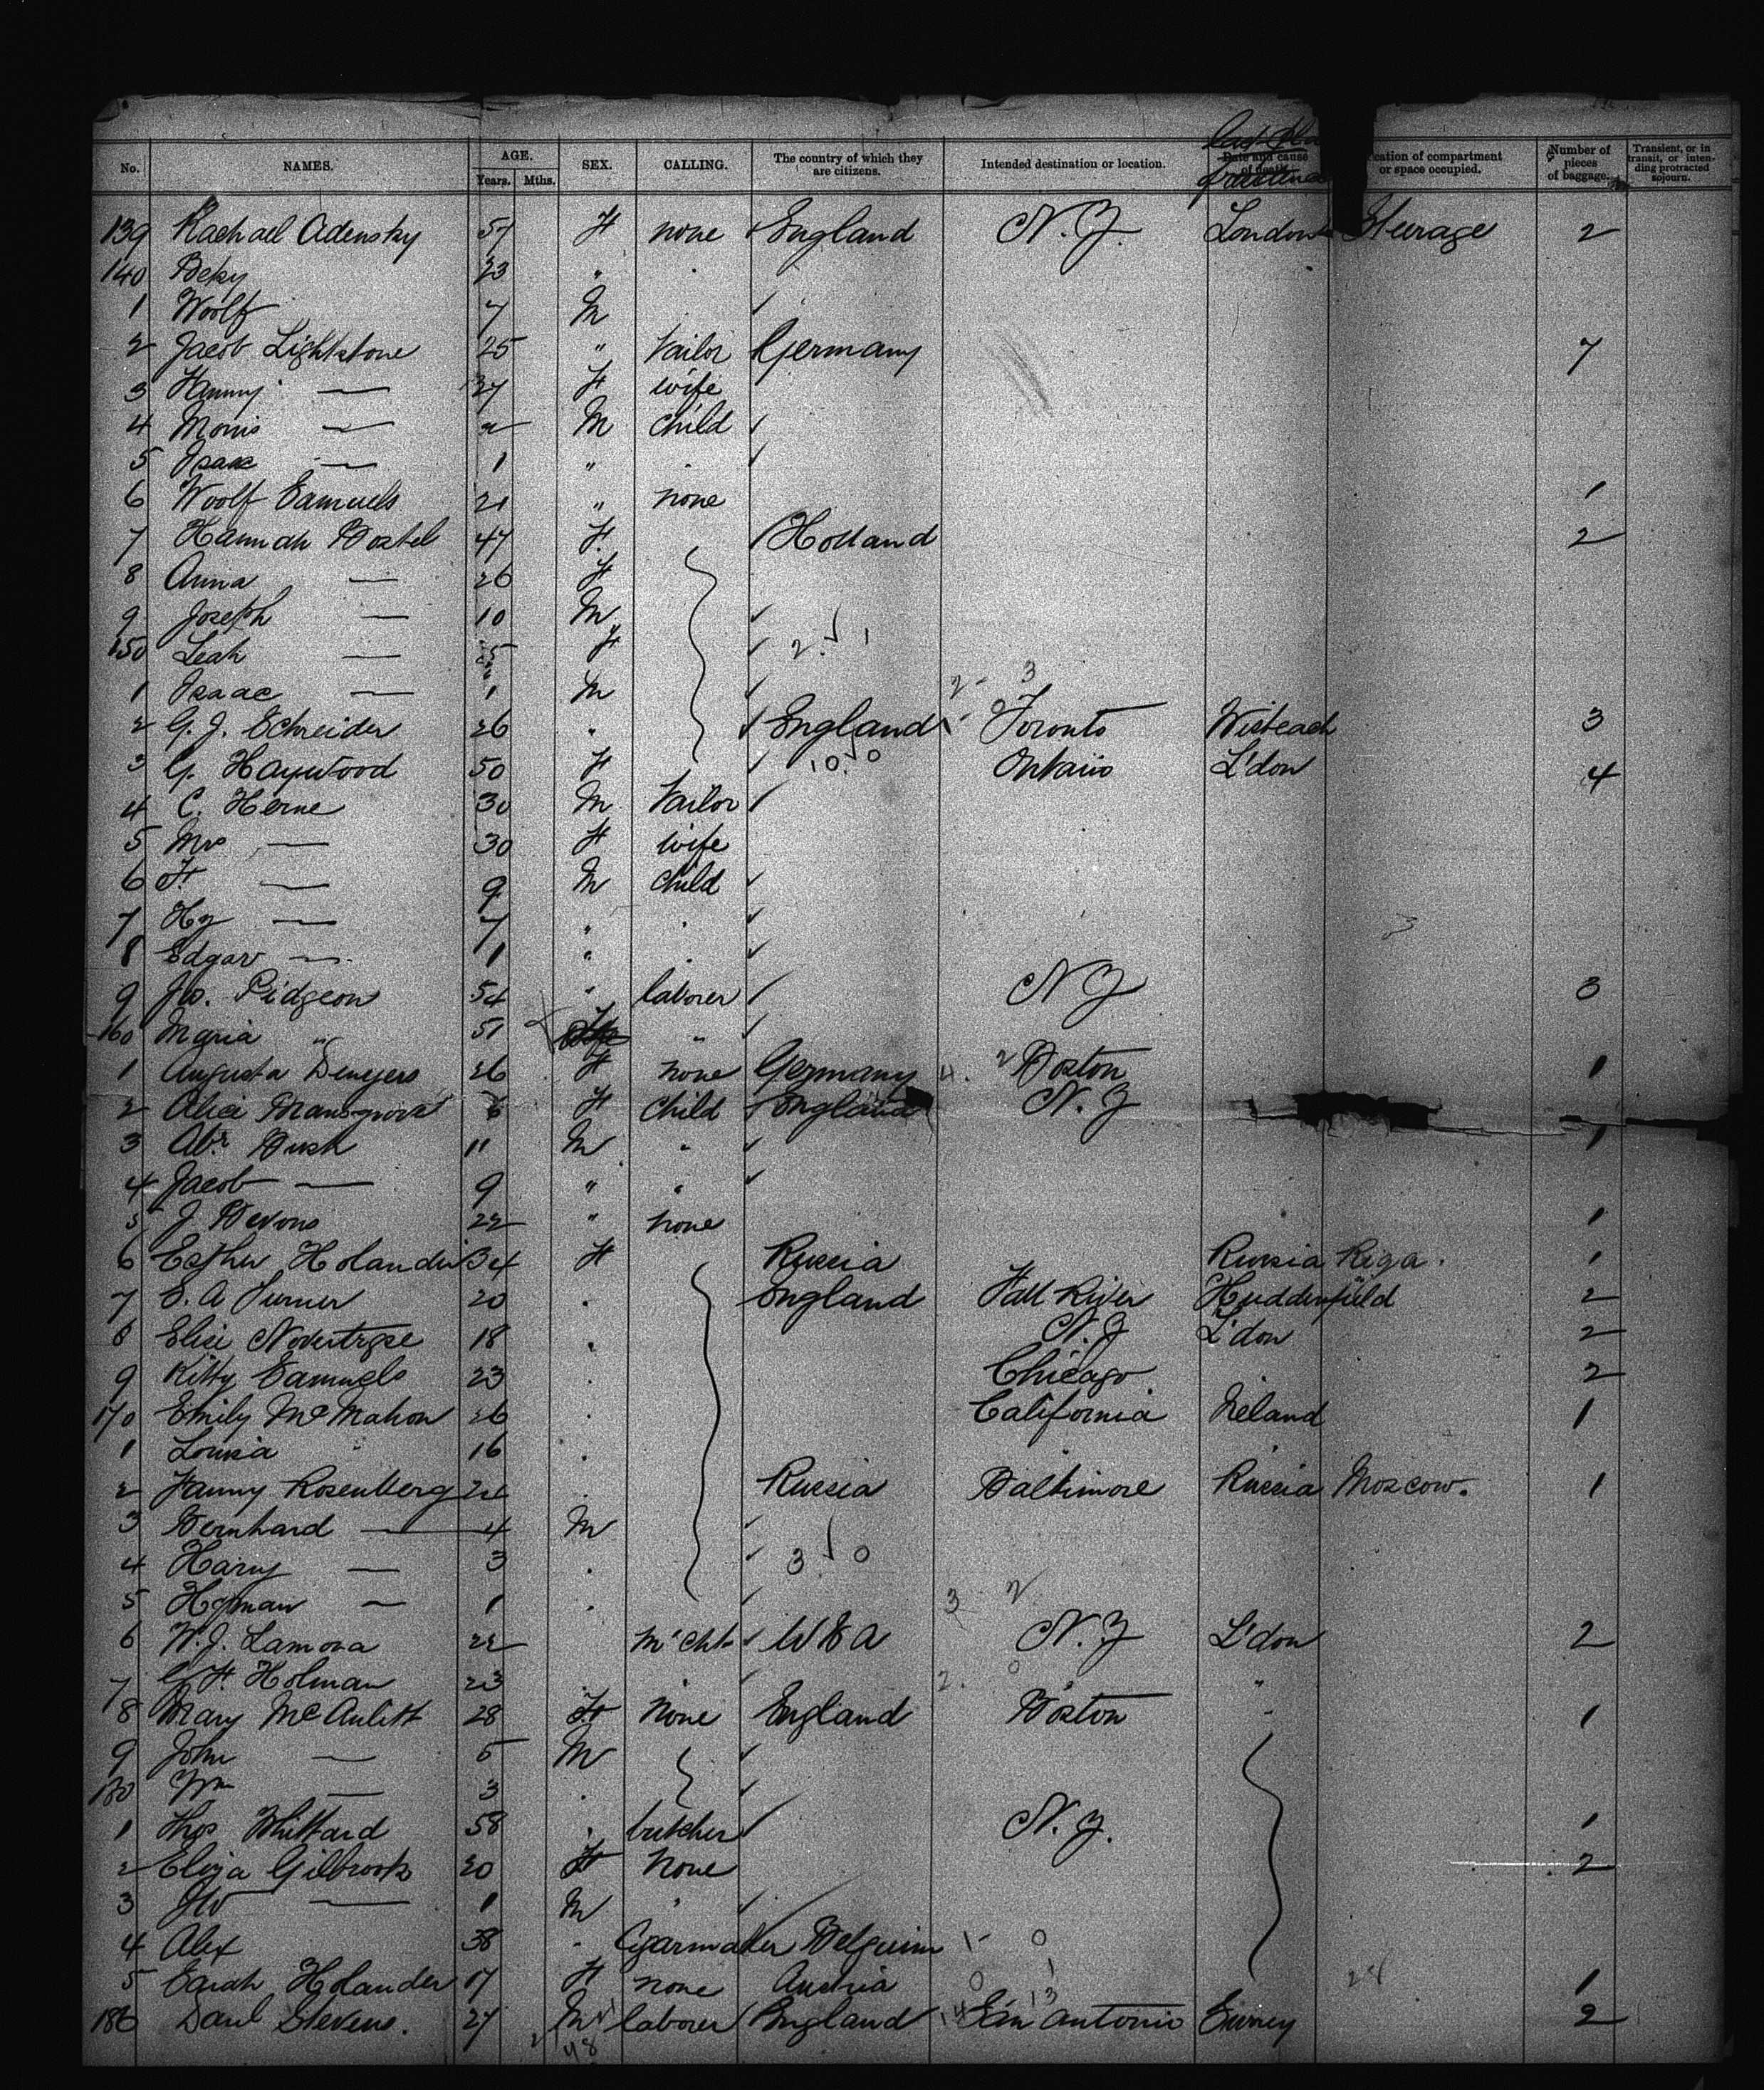 No. NAMES. AGE. Years. Mths. SEX. CALLING. The country of which they are citizens. Intended destination or location. Date and cause of death. Location of compartment or space occupied. Number of pieces of baggage. Transient, or in transit, or intending protracted sojourn.
139 Rachael Adensky 57 F none England N.Y. London Steerage 2
140 Beky 23 "
1 Woolf 7 M
2 Jacob Lightstone 25 " tailor Germany 7
3 Fanny — 27 F wife
4 Morris — 2 M child
5 Isaac — 1 "
6 Woolf Samuels 21 " none 1
7 Hannah Bostel 47 F. Holland 2
8 Anna — 26 F
9 Joseph — 10 M
150 Leah — F 2 1
1 Isaac — 1 M 2 - 3
2 G. J. Schreider 26 " England Toronto Wisbeach 3
3 G. Haywood 50 F 10 0 Ontario L'don 4
4 C. Herne 30 M tailor
5 Mrs — 30 F wife
6 F. — 9 M child
7 Hy — 7 "
8 Edgar — 1 "
9 Jo. Pidgeon 54 " laborer N Y 3
160 Maria " 51 "
1 Augusta Deneyers 26 F none Germany 4. 2 Boston 1
2 Alice 6 F child England N. Y
3 Abr. Bush 11 M " 1
4 Jacob — 9 " "
5 J Bevons 22 " none 1
6 Esther Holander 34 F Russia Russia Riga. 1
7 S. A Turner 20 " England Fall River Huddersfield 2
8 Elise 18 " N. Y L'don 2
9 Kitty Samuels 23 " Chicago 2
170 Emily McMahon 26 " California Ireland 1
1 Louisa " 16 "
2 Fanny Rosenberg 24 " Russia Baltimore Russia Moscow. 1
3 Bernhard — 4 M
4 Harry — 3 " 3 0
5 Hyman — 1 " 3 - 2
6 W. J. Lamora 22 m'cht U S A N. Y L'don 2
7 G. F. Holman 23 2. 0 "
8 Mary McAuliff 28 F none England Boston " 1
9 John — 5 M
180 Wm — 3 "
1 Thos Whittard 58 " butcher N. Y. 1
2 Eliza Gilbrook 20 F none 2
3 Jno — 1 M "
4 Alex 38 " Cigarmaker Belgium 1 - 0
5 Sarah Holander 17 F none Austria 0 1 28 1
186 Danl Stevens. 27 M laborer England 14 13 San Antonio Surrey 2
48